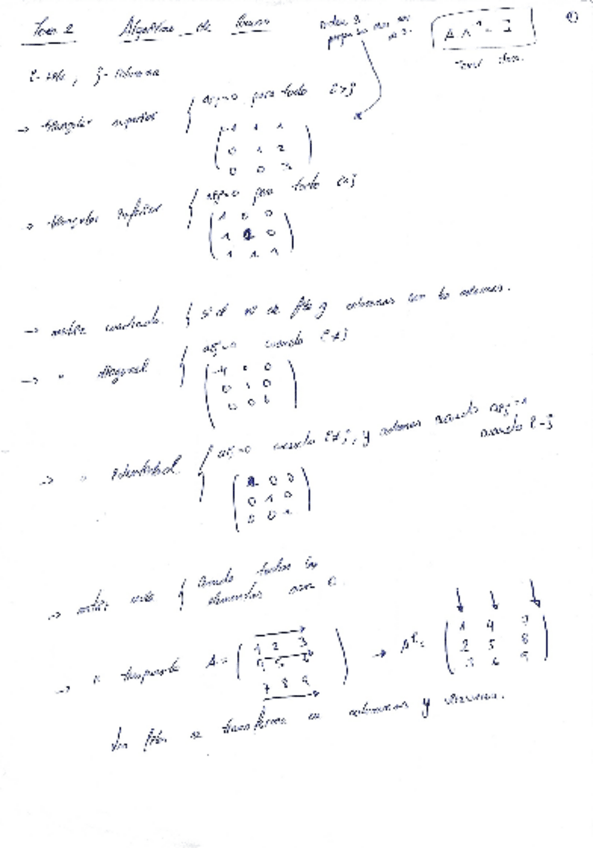 Tema 2 Algebra de
A A⁻¹ = I
i - fila, j - columna
→ triangular superior { aij=0 para todo i>j
-1 1 1
0 1 2
0 0
→ triangular inferior { aij=0 para todo i<j
1 0 0
1 2 0
1 1 1
→ matriz cuadrada { si el nº de filas y columnas son los mismos.
→ " diagonal { aij=0 cuando i≠j
-4 0 0
0 1 0
0 0 6
→ " identidad { aij=0 cuando i≠j, y cuando aij=1
cuando i=j
1 0 0
0 1 0
0 0 1
→ matriz nula { Cuando todos los
elementos son 0.
→ " traspuesta A= 1 2 3 → Aᵗ= 1 4 7
4 5 6 2 5 8
7 8 9 3 6 9
Las filas se transforman en columnas y viceversa.